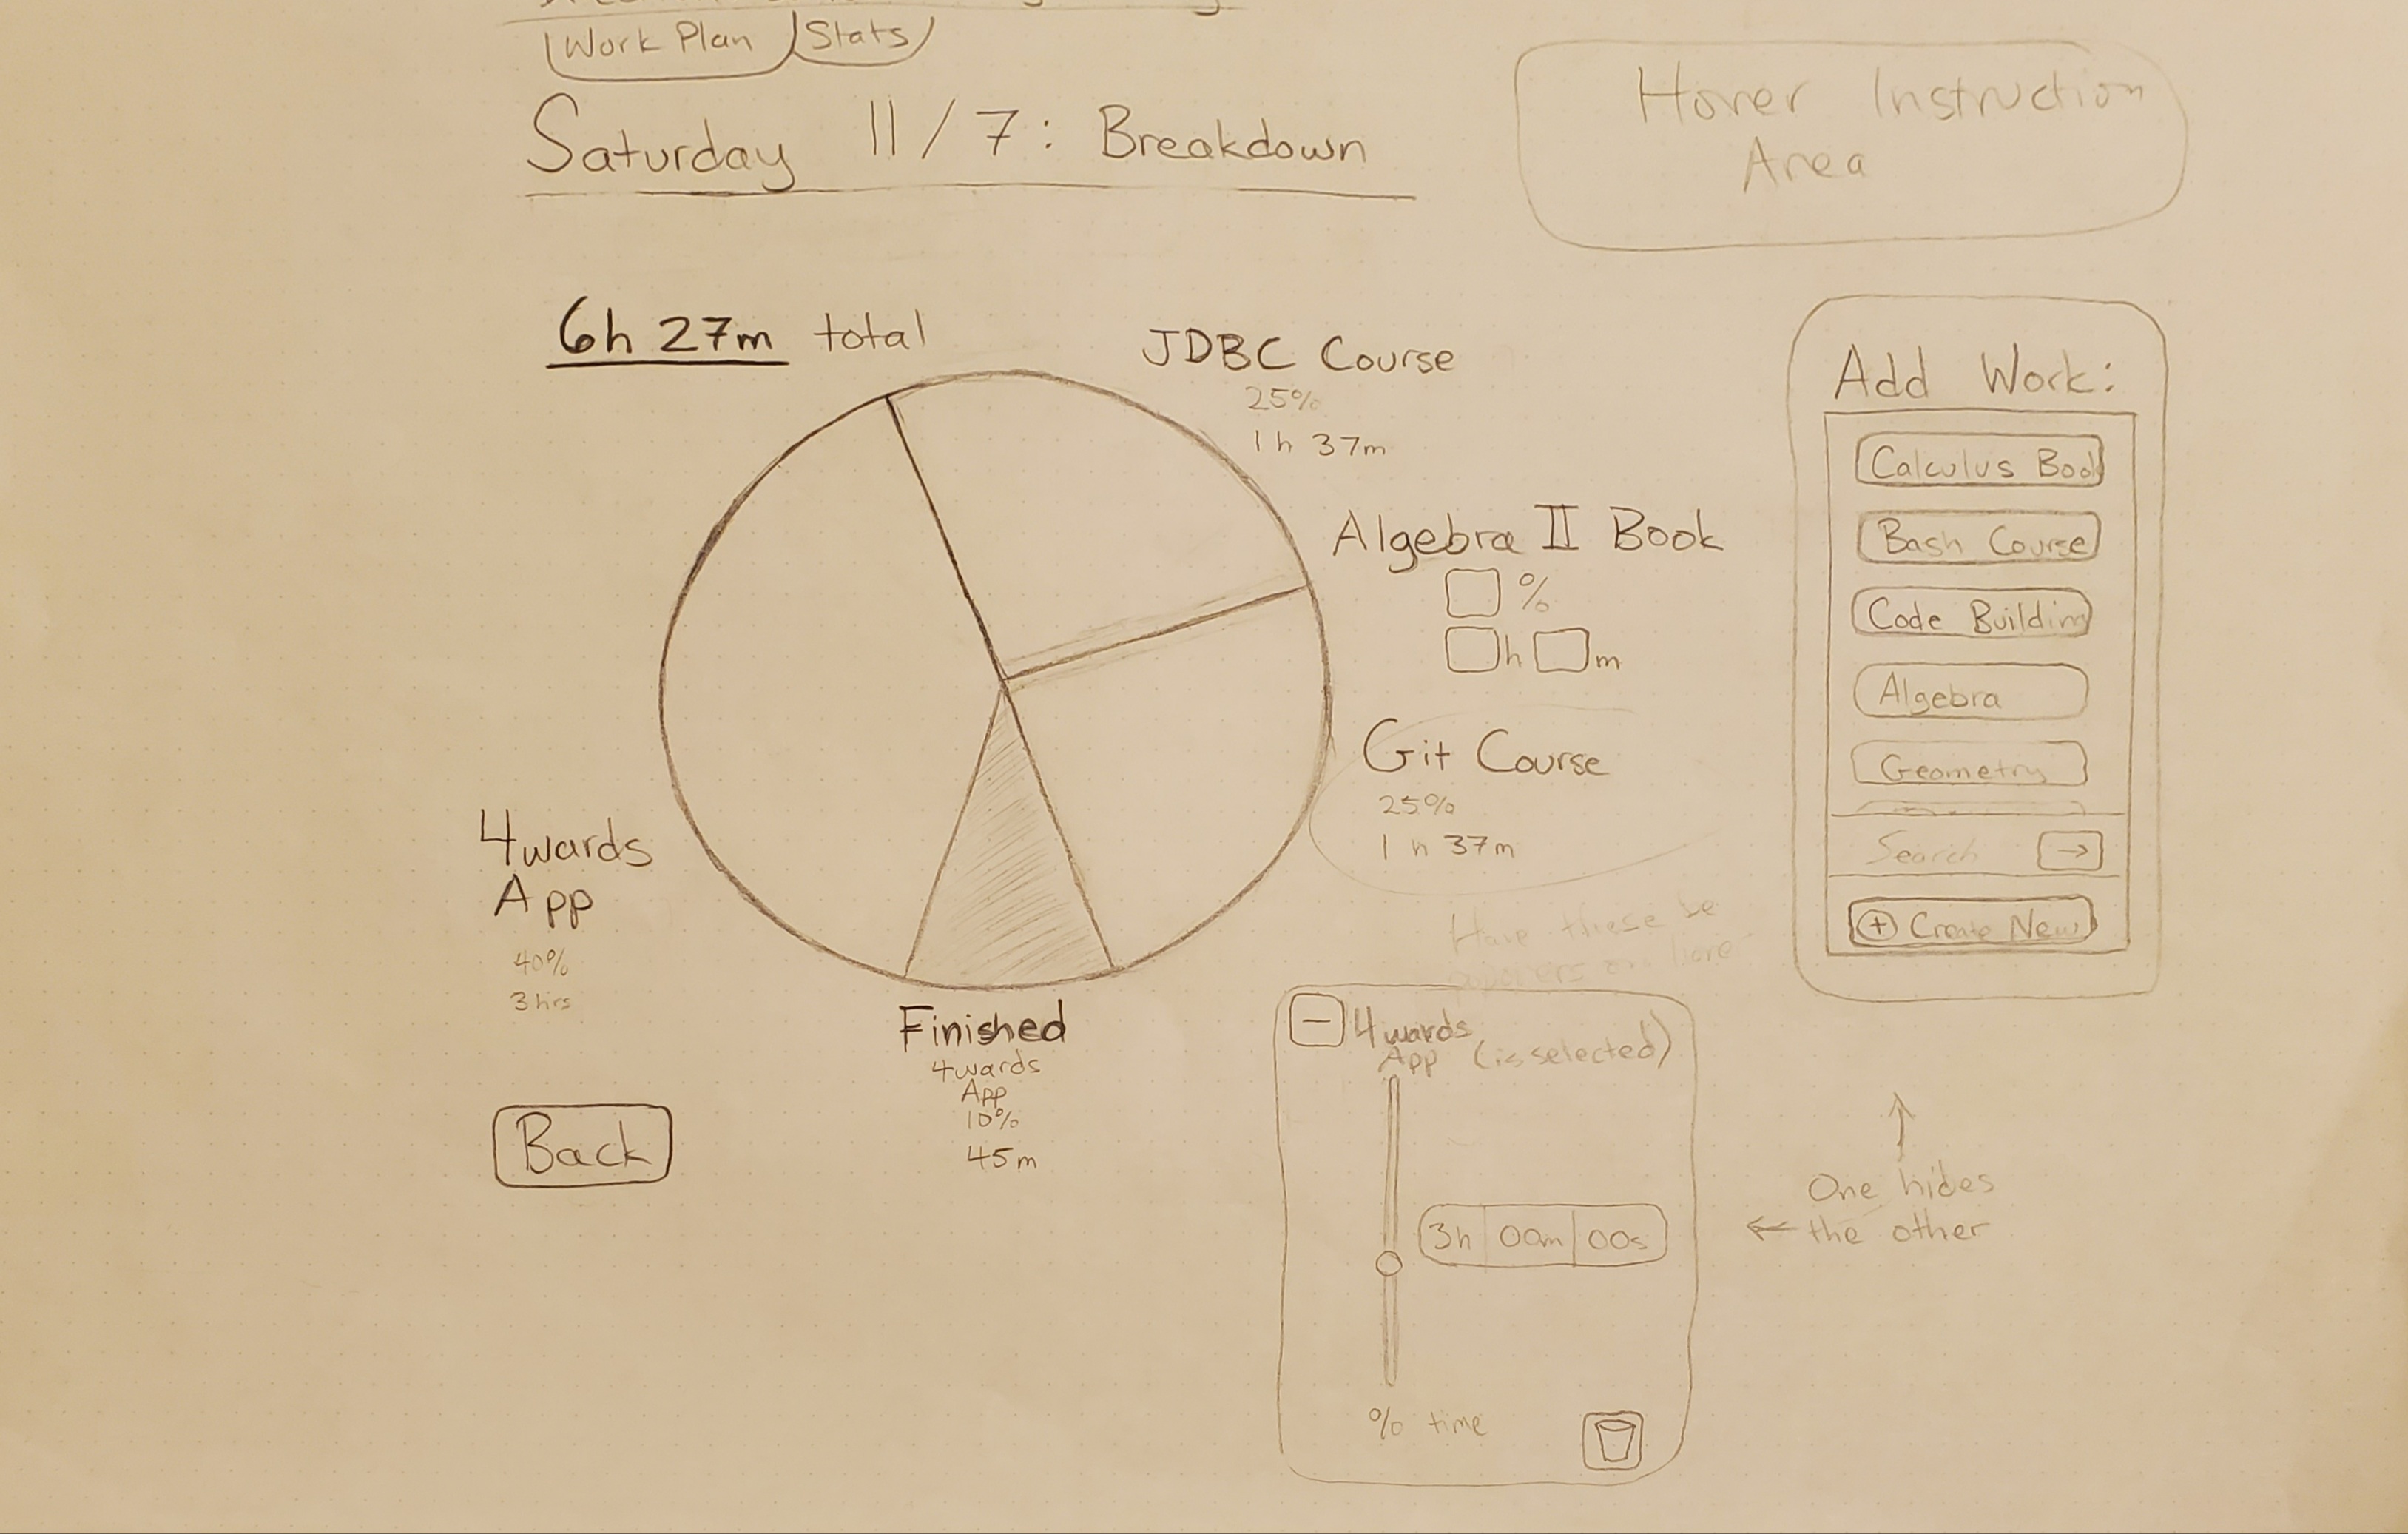 Work Plan
Stats
Saturday 11/7: Breakdown
Hover Instruction
Area
6h 27m total
JDBC Course
25%
1h 37m
Algebra II Book
%
h m
Git Course
25%
1h 37m
Have these be
4wards
App
40%
3hrs
Finished
4wards
App
10%
45m
Back
Add Work:
Calculus Boo
Bash Course
Code Buildin
Algebra
Geometry
Search →
+ Create New
− 4wards
App (is selected)
3h 00m 00s
% time
One hides
← the other